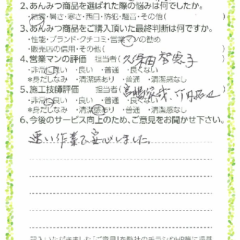 2.あんみつ商品を選ばれた際の悩みは何でしたか。
・結露・暑さ・寒さ・雨臼・防犯・騒音・その他( )
3.あんみつ商品をご購入頂いた最終判断は何ですか。
・性能・ブランド・クチコミ・営業マンの勧め
・販売店の信用・その他( )
4.営業マンの評価 担当者( )
・非常に良い ・良い ・普通 ・良くない
※身だしなみ ・清潔感あり ・普通 ・清潔感なし
5.施工技師評価 担当者( )
・非常に良い ・良い ・普通 ・良くない
※身だしなみ ・清潔感あり ・普通 ・清潔感なし
6.今後のサービス向上のため、ご意見をお聞かせ下さい。
速い作業で安心しました。